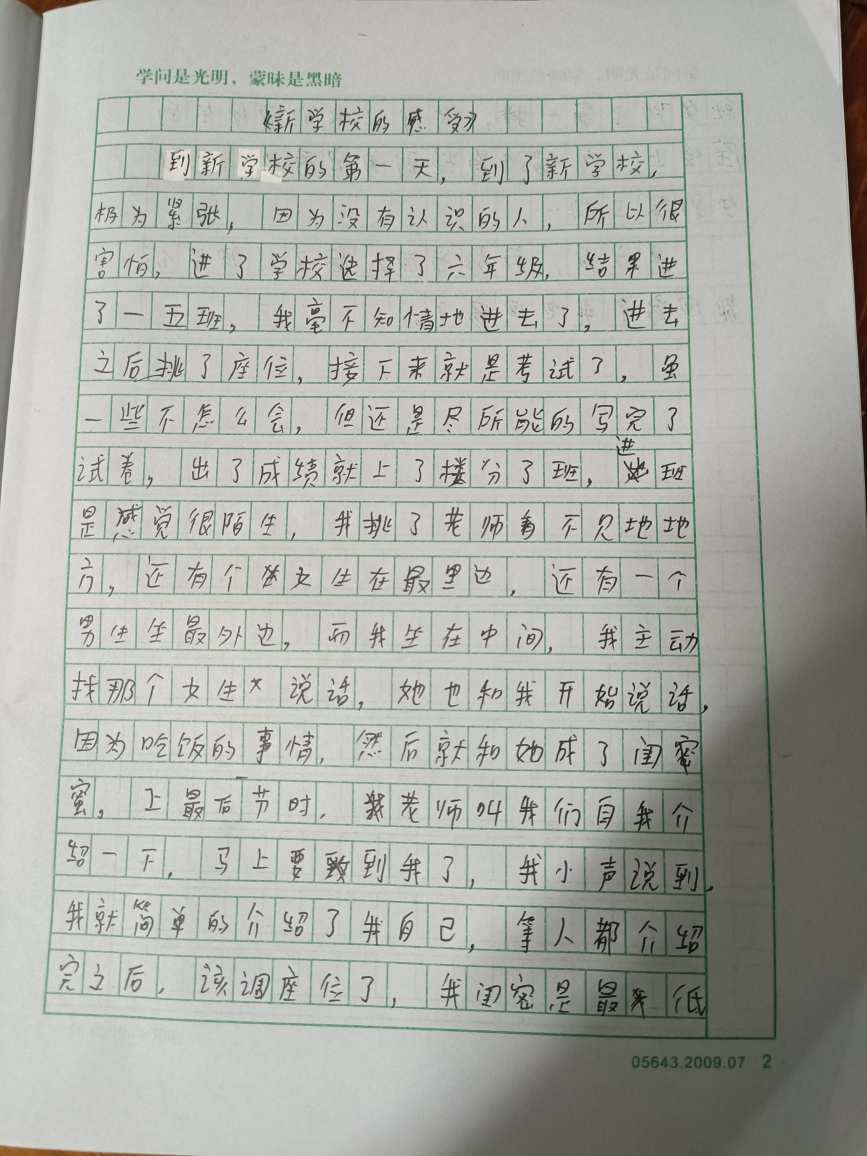 学问是光明，蒙昧是黑暗
《新学校的感受》
到新学校的第一天，到了新学校，
极为紧张，因为没有认识的人，所以很
害怕，进了学校选择了六年级，结果进
了一五班，我毫不知情地进去了，进去
之后挑了座位，接下来就是考试了，虽
一些不怎么会，但还是尽所能的写完了
试卷，出了成绩就上了楼分了班，进班
是感觉很陌生，我挑了老师看不见地地
方，还有个女生在最里边，还有一个
男生坐最外边，而我坐在中间，我主动
找那个女生说话，她也和我开始说话，
因为吃饭的事情，然后就和她成了闺蜜
蜜，上最后一节时，老师叫我们自我介
绍一下，马上要到我了，我小声说到，
我就简单的介绍了我自己，等人都介绍
完之后，该调座位了，我闺密是最低
05643.2009.07 2